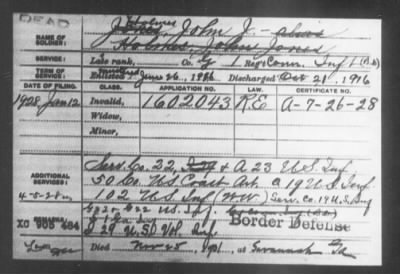 DEAD
Holmes
NAME OF SOLDIER:
John J. - alias
Holmes, John Jones
SERVICE:
Late rank, Co. G 1 Reg't Conn. Inf
TERM OF SERVICE:
Enlisted June 26, 1916 Discharged Oct 21, 1916
DATE OF FILING.
CLASS.
APPLICATION NO.
LAW.
CERTIFICATE NO.
1928 Jan 12
Invalid,
1602043
R.E
A-7-26-28
Widow,
Minor,
ADDITIONAL SERVICES:
Serv. Co. 22, & A 23 U.S. Inf
50 Co. US Coast Art. C 19 U.S. Inf.
4-5-28
102 U.S. Inf (WW) Serv. Co. 19 U.S. Inf
U.S. Inf.
REMARKS:
XC 905 484
Border Defense
I 29 U.S. Vol. Inf.
Died Nov 25, 191 , at Savannah Ga